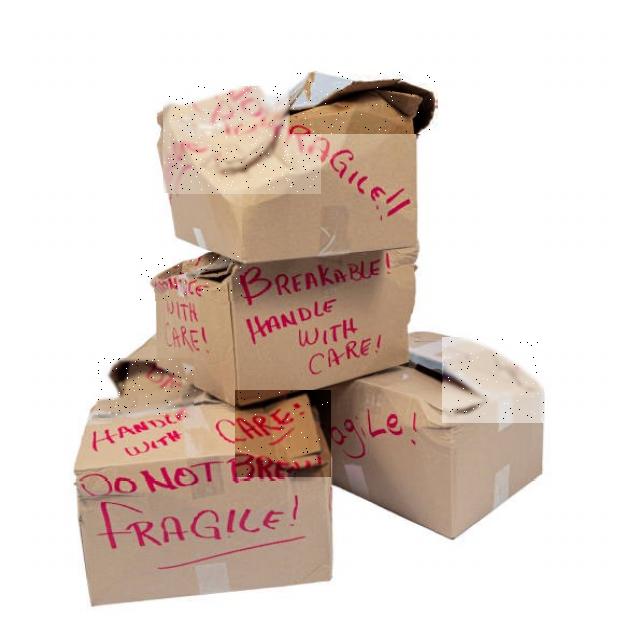 FRAGILE!!
HANDLE
WITH
CARE!
BREAKABLE!
HANDLE
WITH
CARE!
HANDLE
WITH CARE!
DO NOT BREAK
FRAGILE!
agiLe!